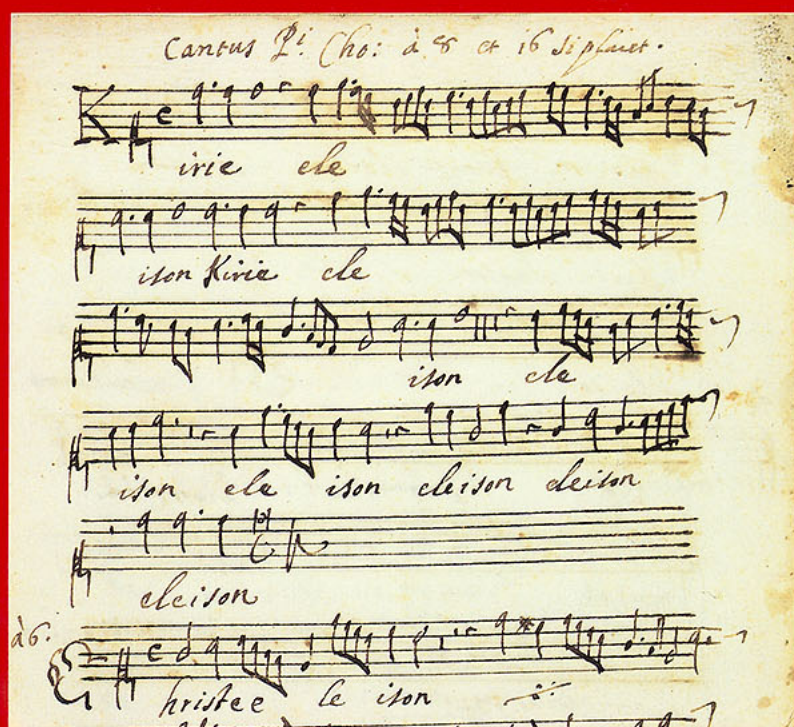 Cantus Pi. Cho: à 8 et 16 si placet.
Kirie ele
ison Kirie ele
ison ele
ison ele ison eleison eleison
eleison
à6.
Christee le ison